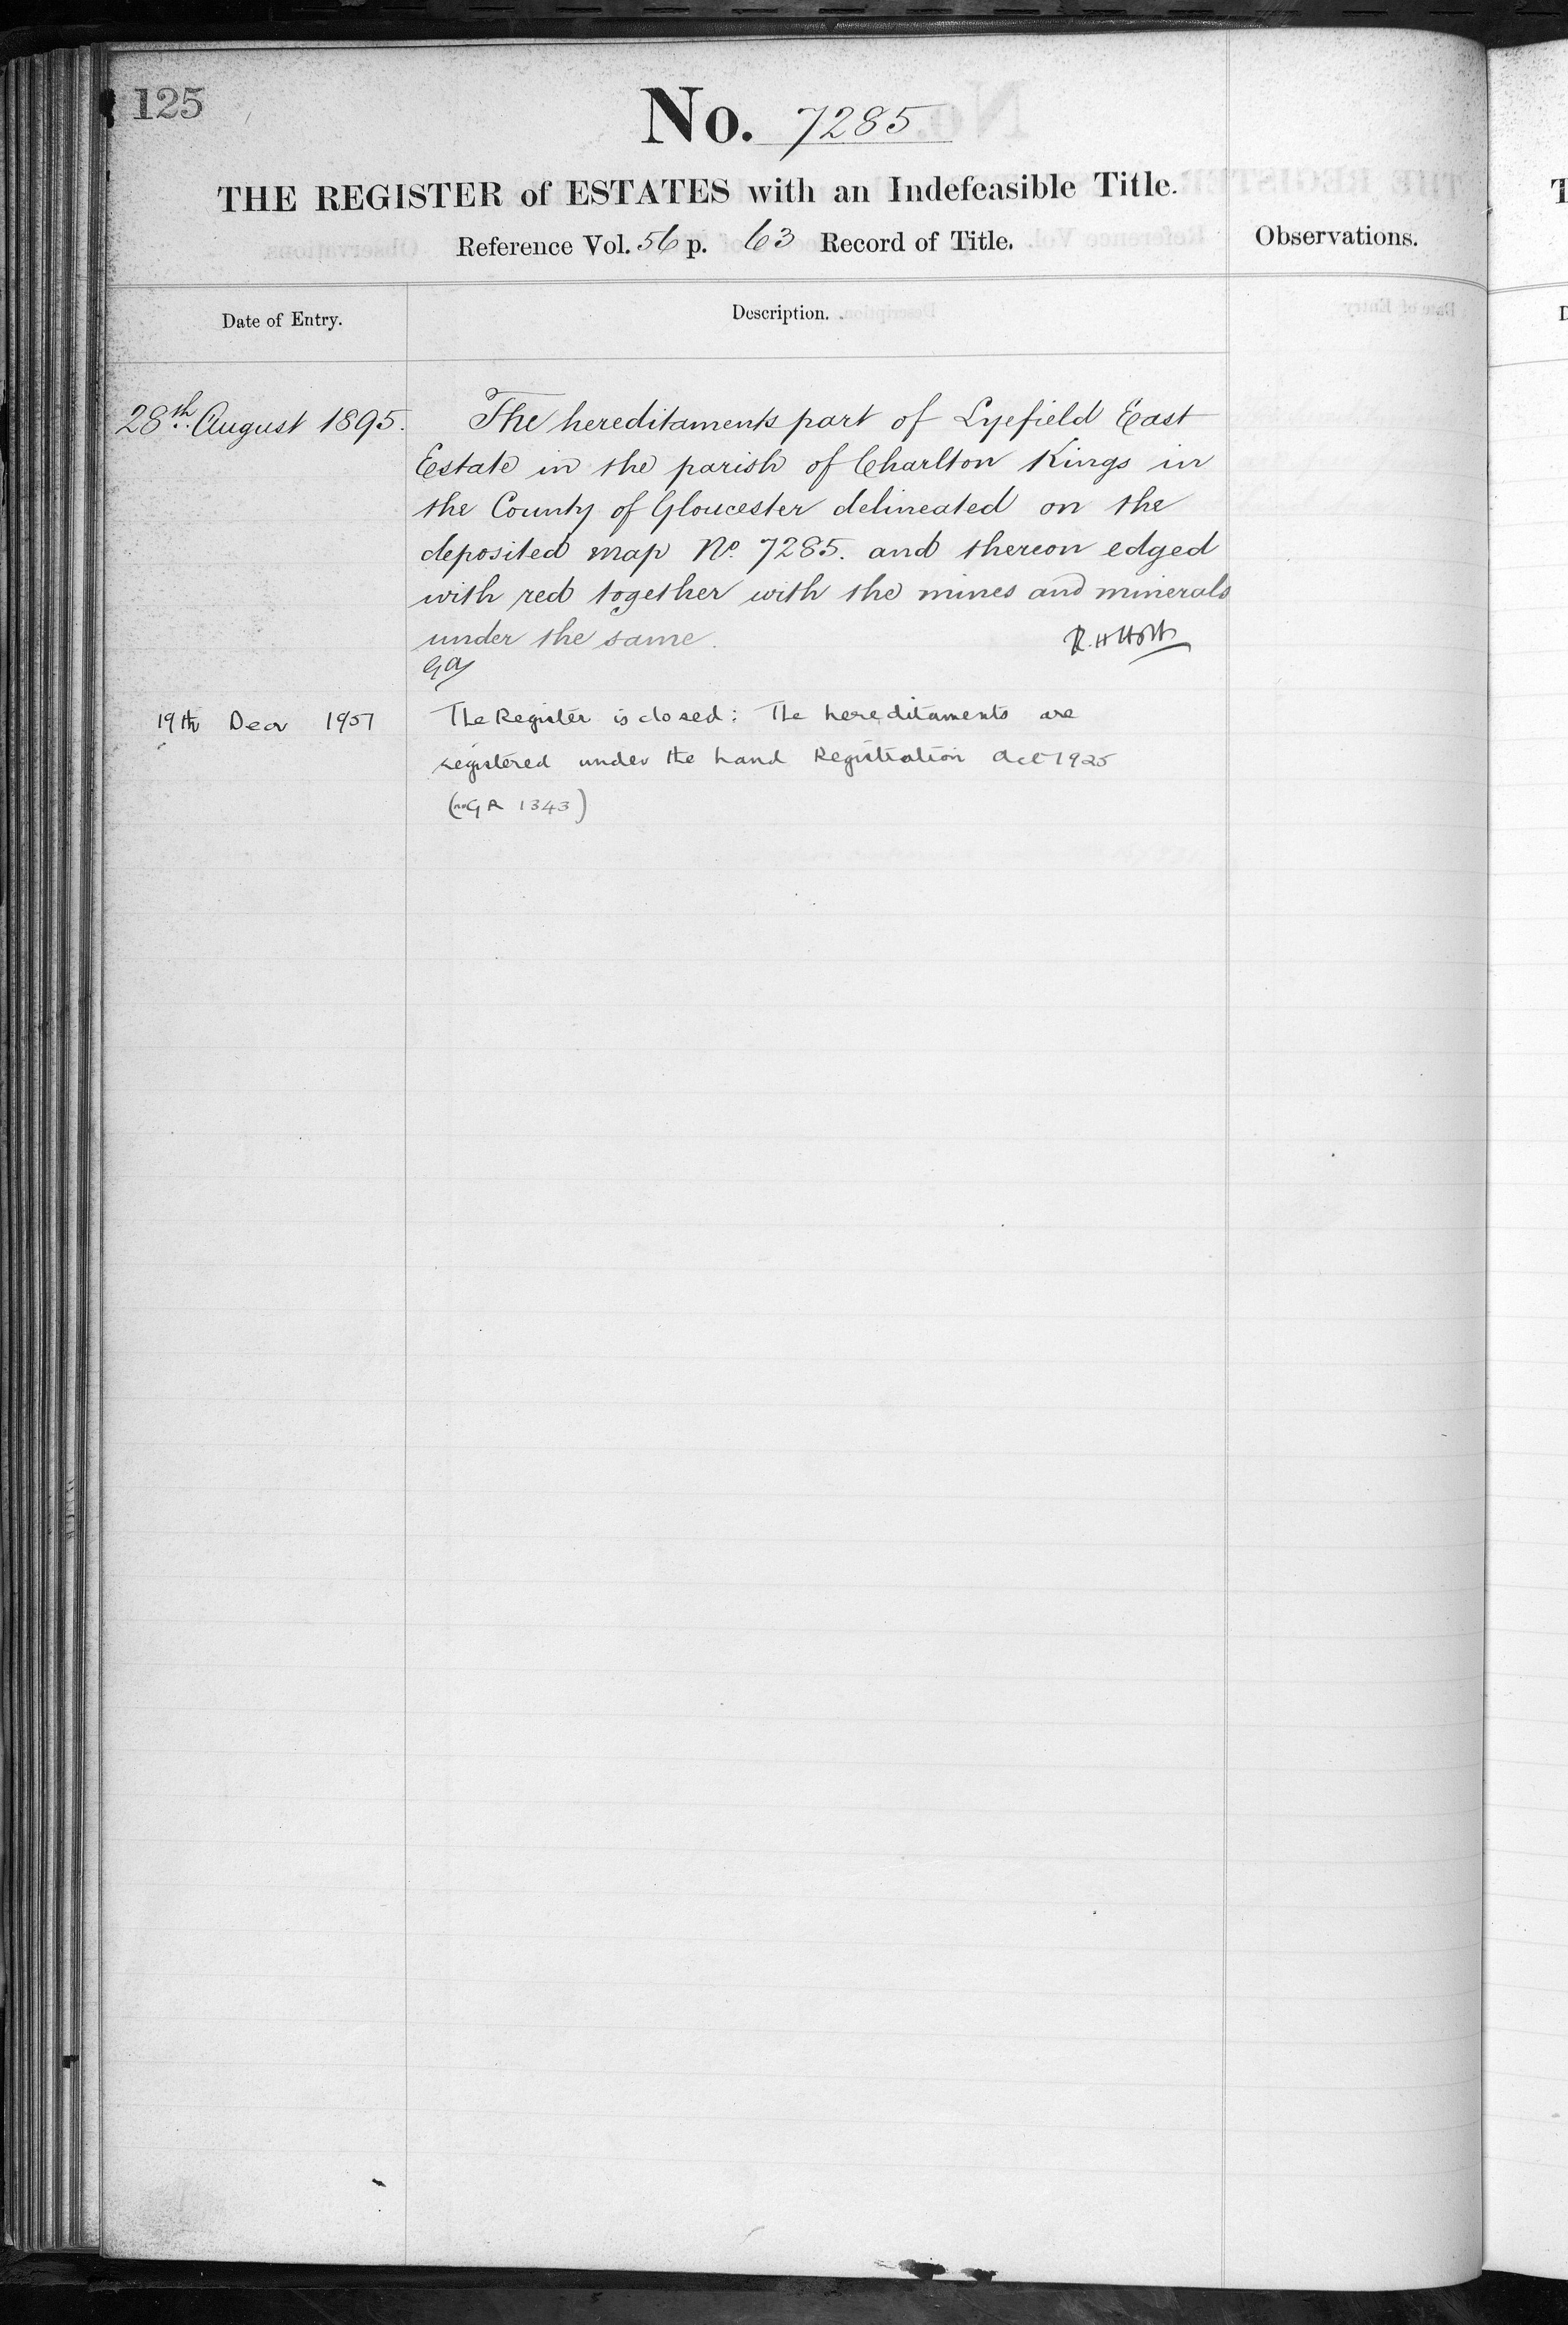 125
No. 7285
THE REGISTER of ESTATES with an Indefeasible Title.
Reference Vol. 56 p. 63 Record of Title.
Observations.
Date of Entry.
Description.
28th. August 1895.
The hereditaments part of Lyefield East
Estate in the parish of Charlton Kings in
the County of Gloucester delineated on the
deposited map No. 7285. and thereon edged
with red together with the mines and minerals
under the same.
19th Decr 1951
The Register is closed: The hereditaments are
registered under the Land Registration Act 1925
(GR 1343)